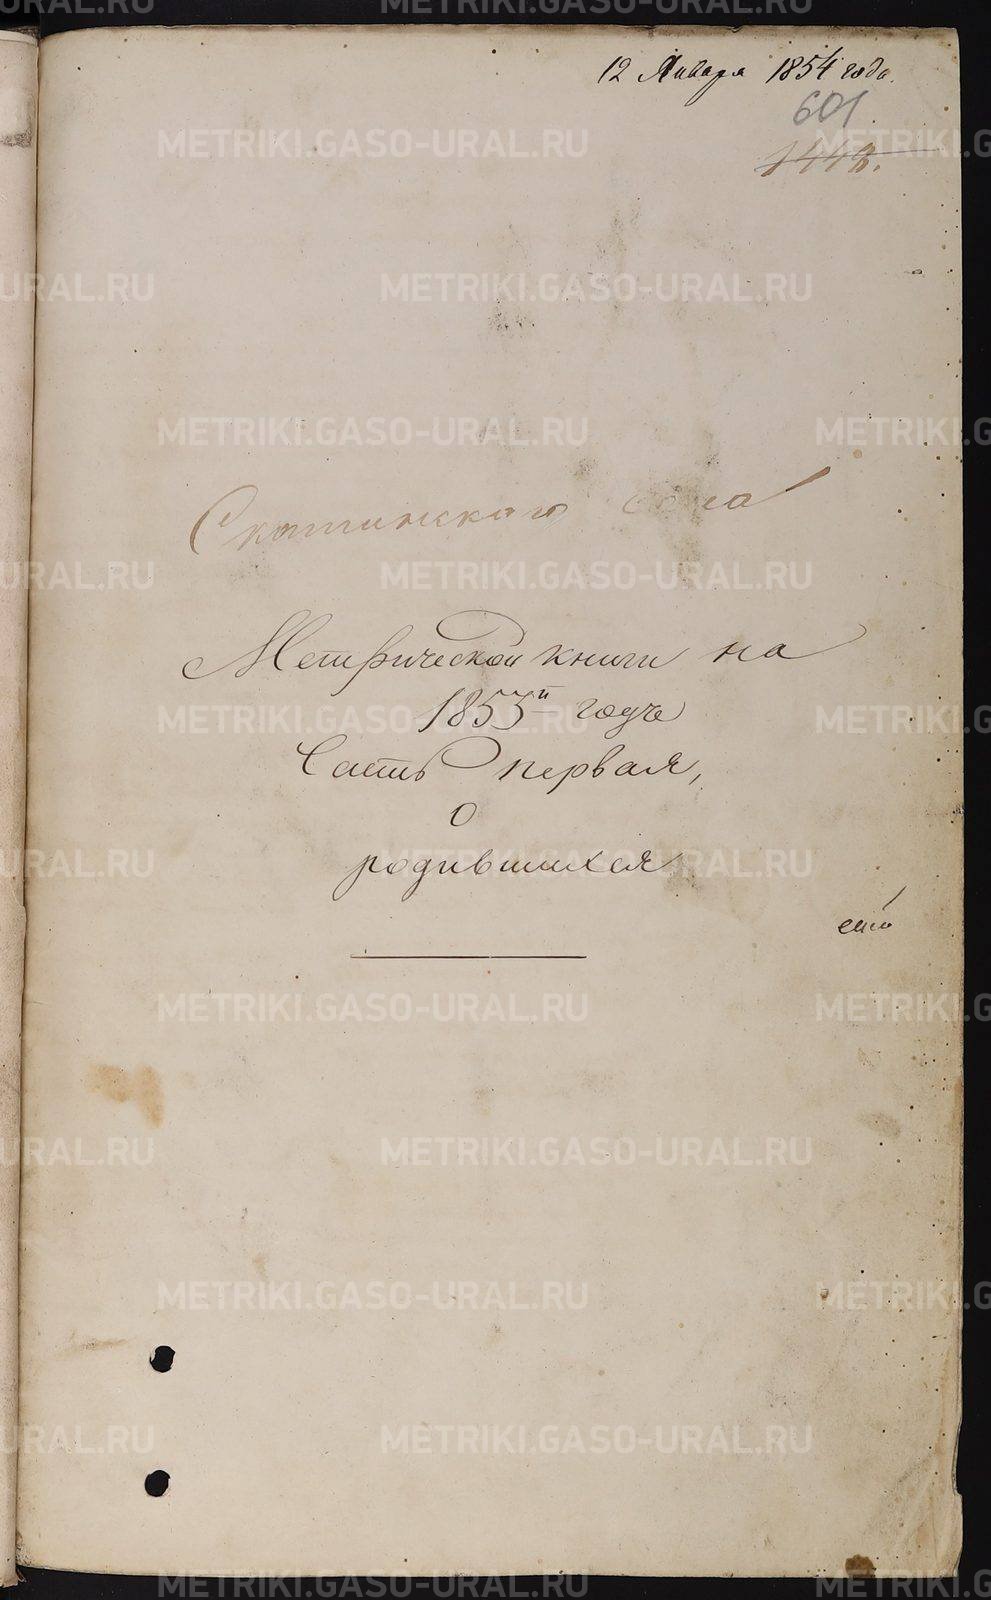 12 Января 1854 года.
601
1443.
Скатинского села
Метрической книги на
1853й годъ
Часть первая,
о
родившихся
METRIKI.GASO-URAL.RU